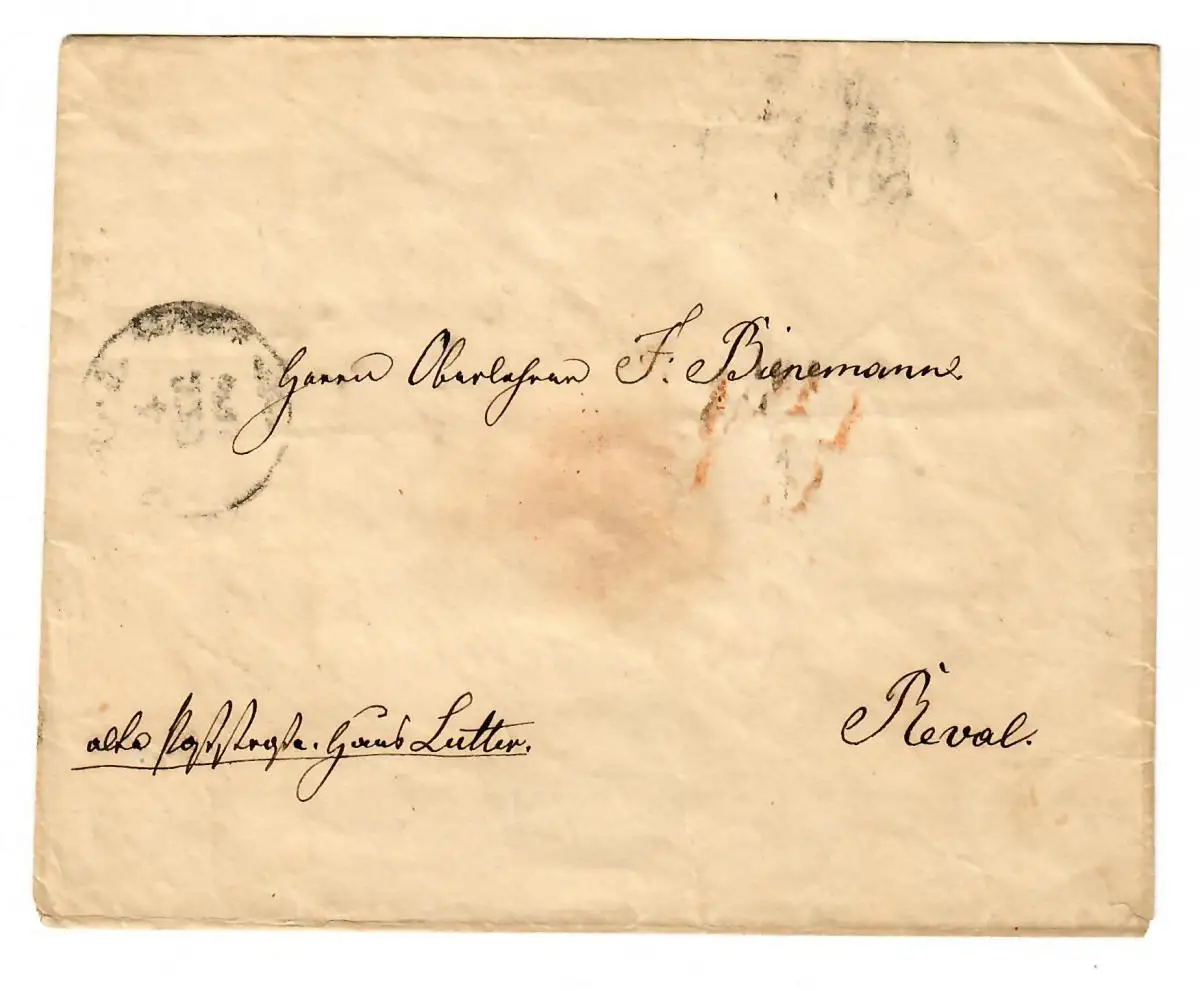 Herrn Oberlehrer F. Bienemann.
Reval.
alte Poststraße. Haus Lutter.